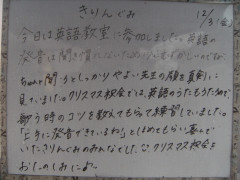 きりんぐみ 12/3(金)
今日は英語教室に参加しました。英語の
発音は聞き慣れないため
ちゃんと聞うとしっかりやよい先生の顔を真剣に
見ていました。クリスマス祝会では、英語のうたもうたうので
歌う時のコツを教えてもらって練習していました。
「上手に発音できているね」とほめてもらい喜んで
いたきりんぐみのみんなでした。クリスマス祝会を
おたのしみに